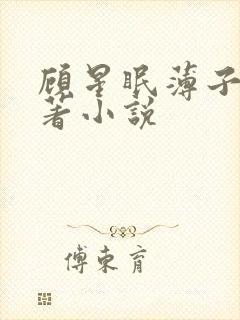 顾星眠薄子
著小说
傅东育